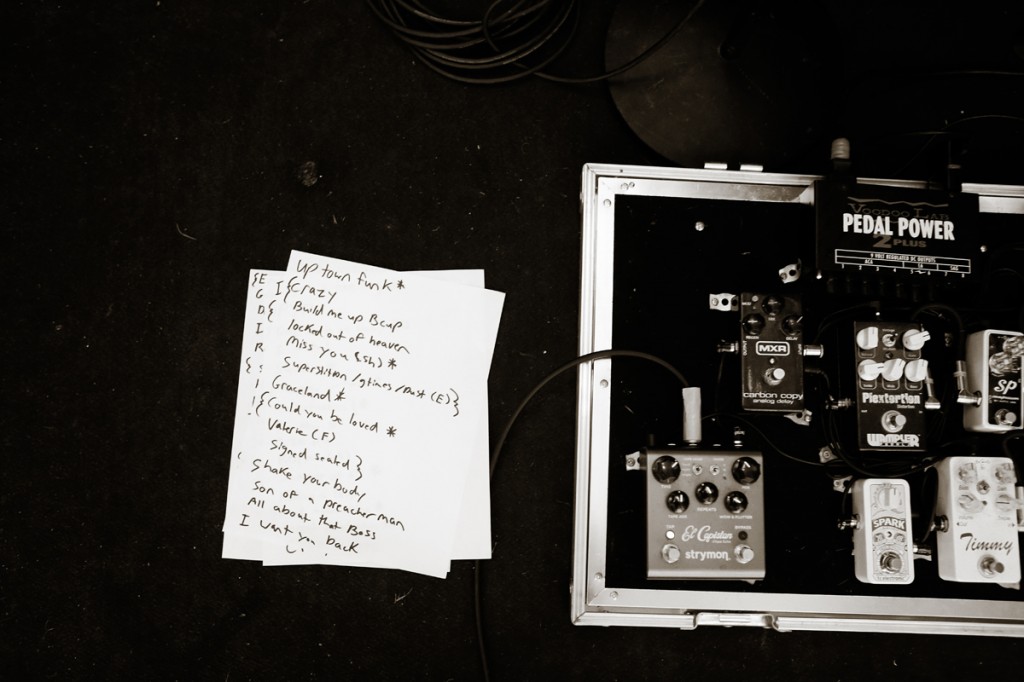 uptown funk *
I { Crazy
{ Build me up Bcup
locked out of heaven
Miss you (sh) *
Superstition /gtimes/Past (E) }
Graceland *
{ Could you be loved *
Valerie (F)
Signed sealed }
Shake your body
Son of a preacher man
All about that Bass
I want you back
{E
G
D
I
R
VOODOO LAB
PEDAL POWER
2 PLUS
9 VOLT REGULATED DC OUTPUTS
MXR
carbon copy
analog delay
Plextortion
Distortion
WAMPLER
SP
El Capistan
strymon
SPARK
Timmy